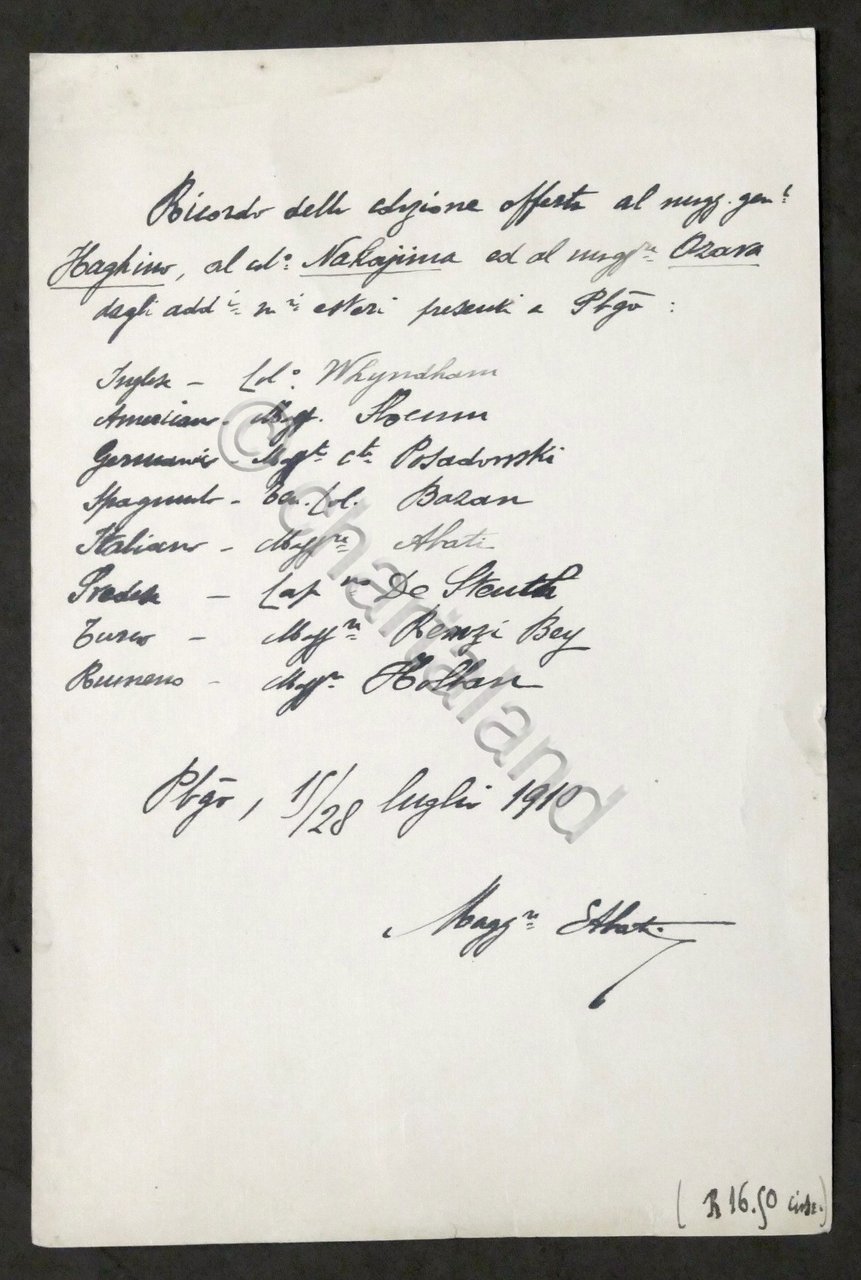 Ricordo della colazione offerta al magg. gen.ˡ
Haghino, al col.º Nakajima ed al magg.ʳᵉ Ozava
dagli add.ⁱ m.ⁱ esteri presenti a Pbgō :
Inglese - Col.º Whyndham
Americano - Magg. Slocum
Germanico - Magg.ʳᵉ c.ᵗᵉ Posadowski
Spagnuolo - Ten. Col. Bazan
Italiano - Magg.ʳᵉ Abati
Svedese - Cap.ⁿᵒ De
Turco - Magg.ʳᵉ Remzi Bey
Rumeno - Magg.ʳᵉ Holban
Pbgō, 15/28 luglio 1910
Magg.ʳᵉ EAbati
(R 16.50
© chartaland